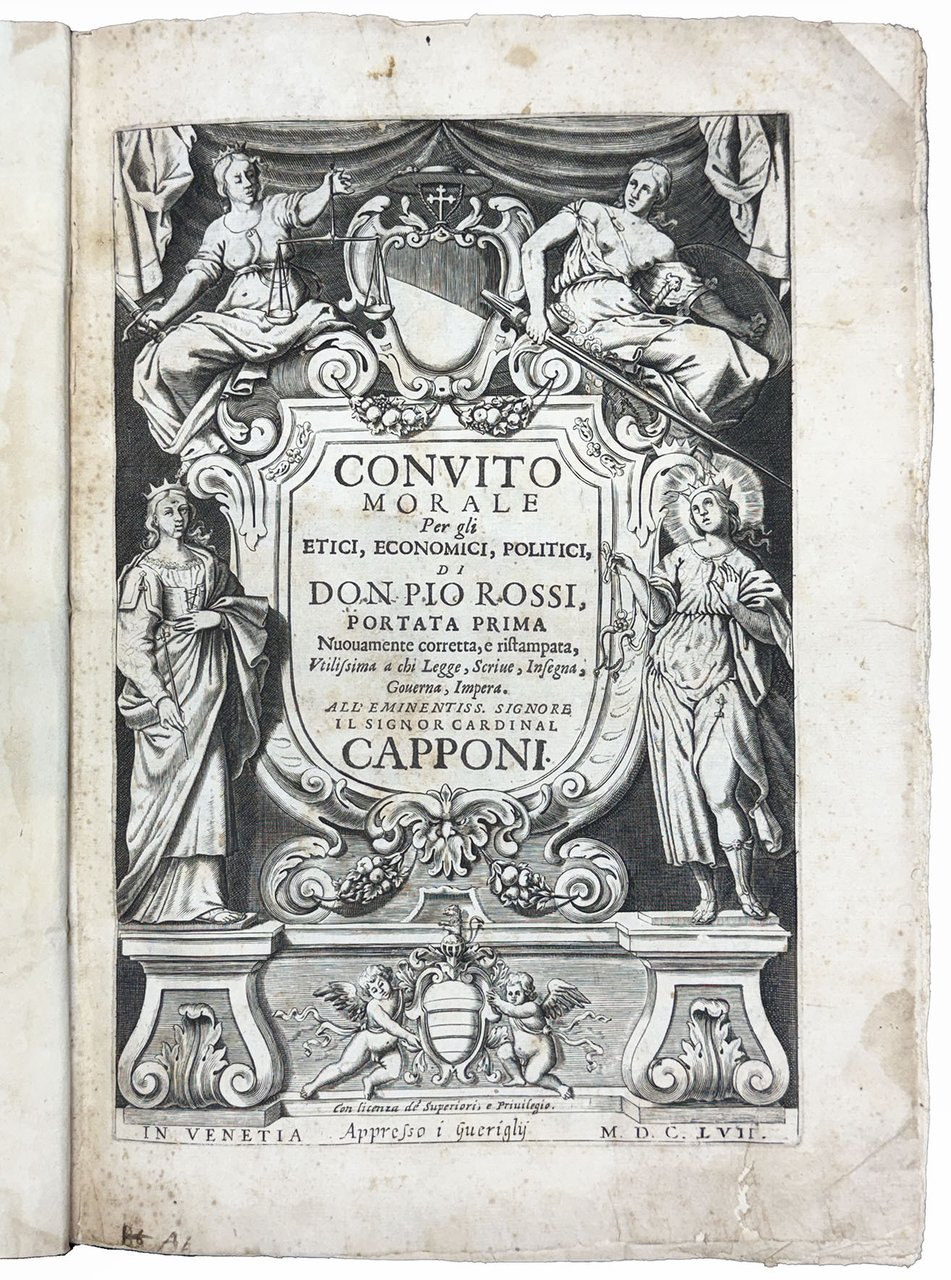 CONVITO
MORALE
Per gli
ETICI, ECONOMICI, POLITICI,
DI
DON PIO ROSSI,
PORTATA PRIMA
Nuouamente corretta, e ristampata,
Vtilissima a chi Legge, Scriue, Insegna,
Gouerna, Impera.
ALL' EMINENTISS. SIGNORE
IL SIGNOR CARDINAL
CAPPONI.
Con licenza de' Superiori, e Priuilegio.
IN VENETIA Appresso i Guerigly M. D. C. LVII.